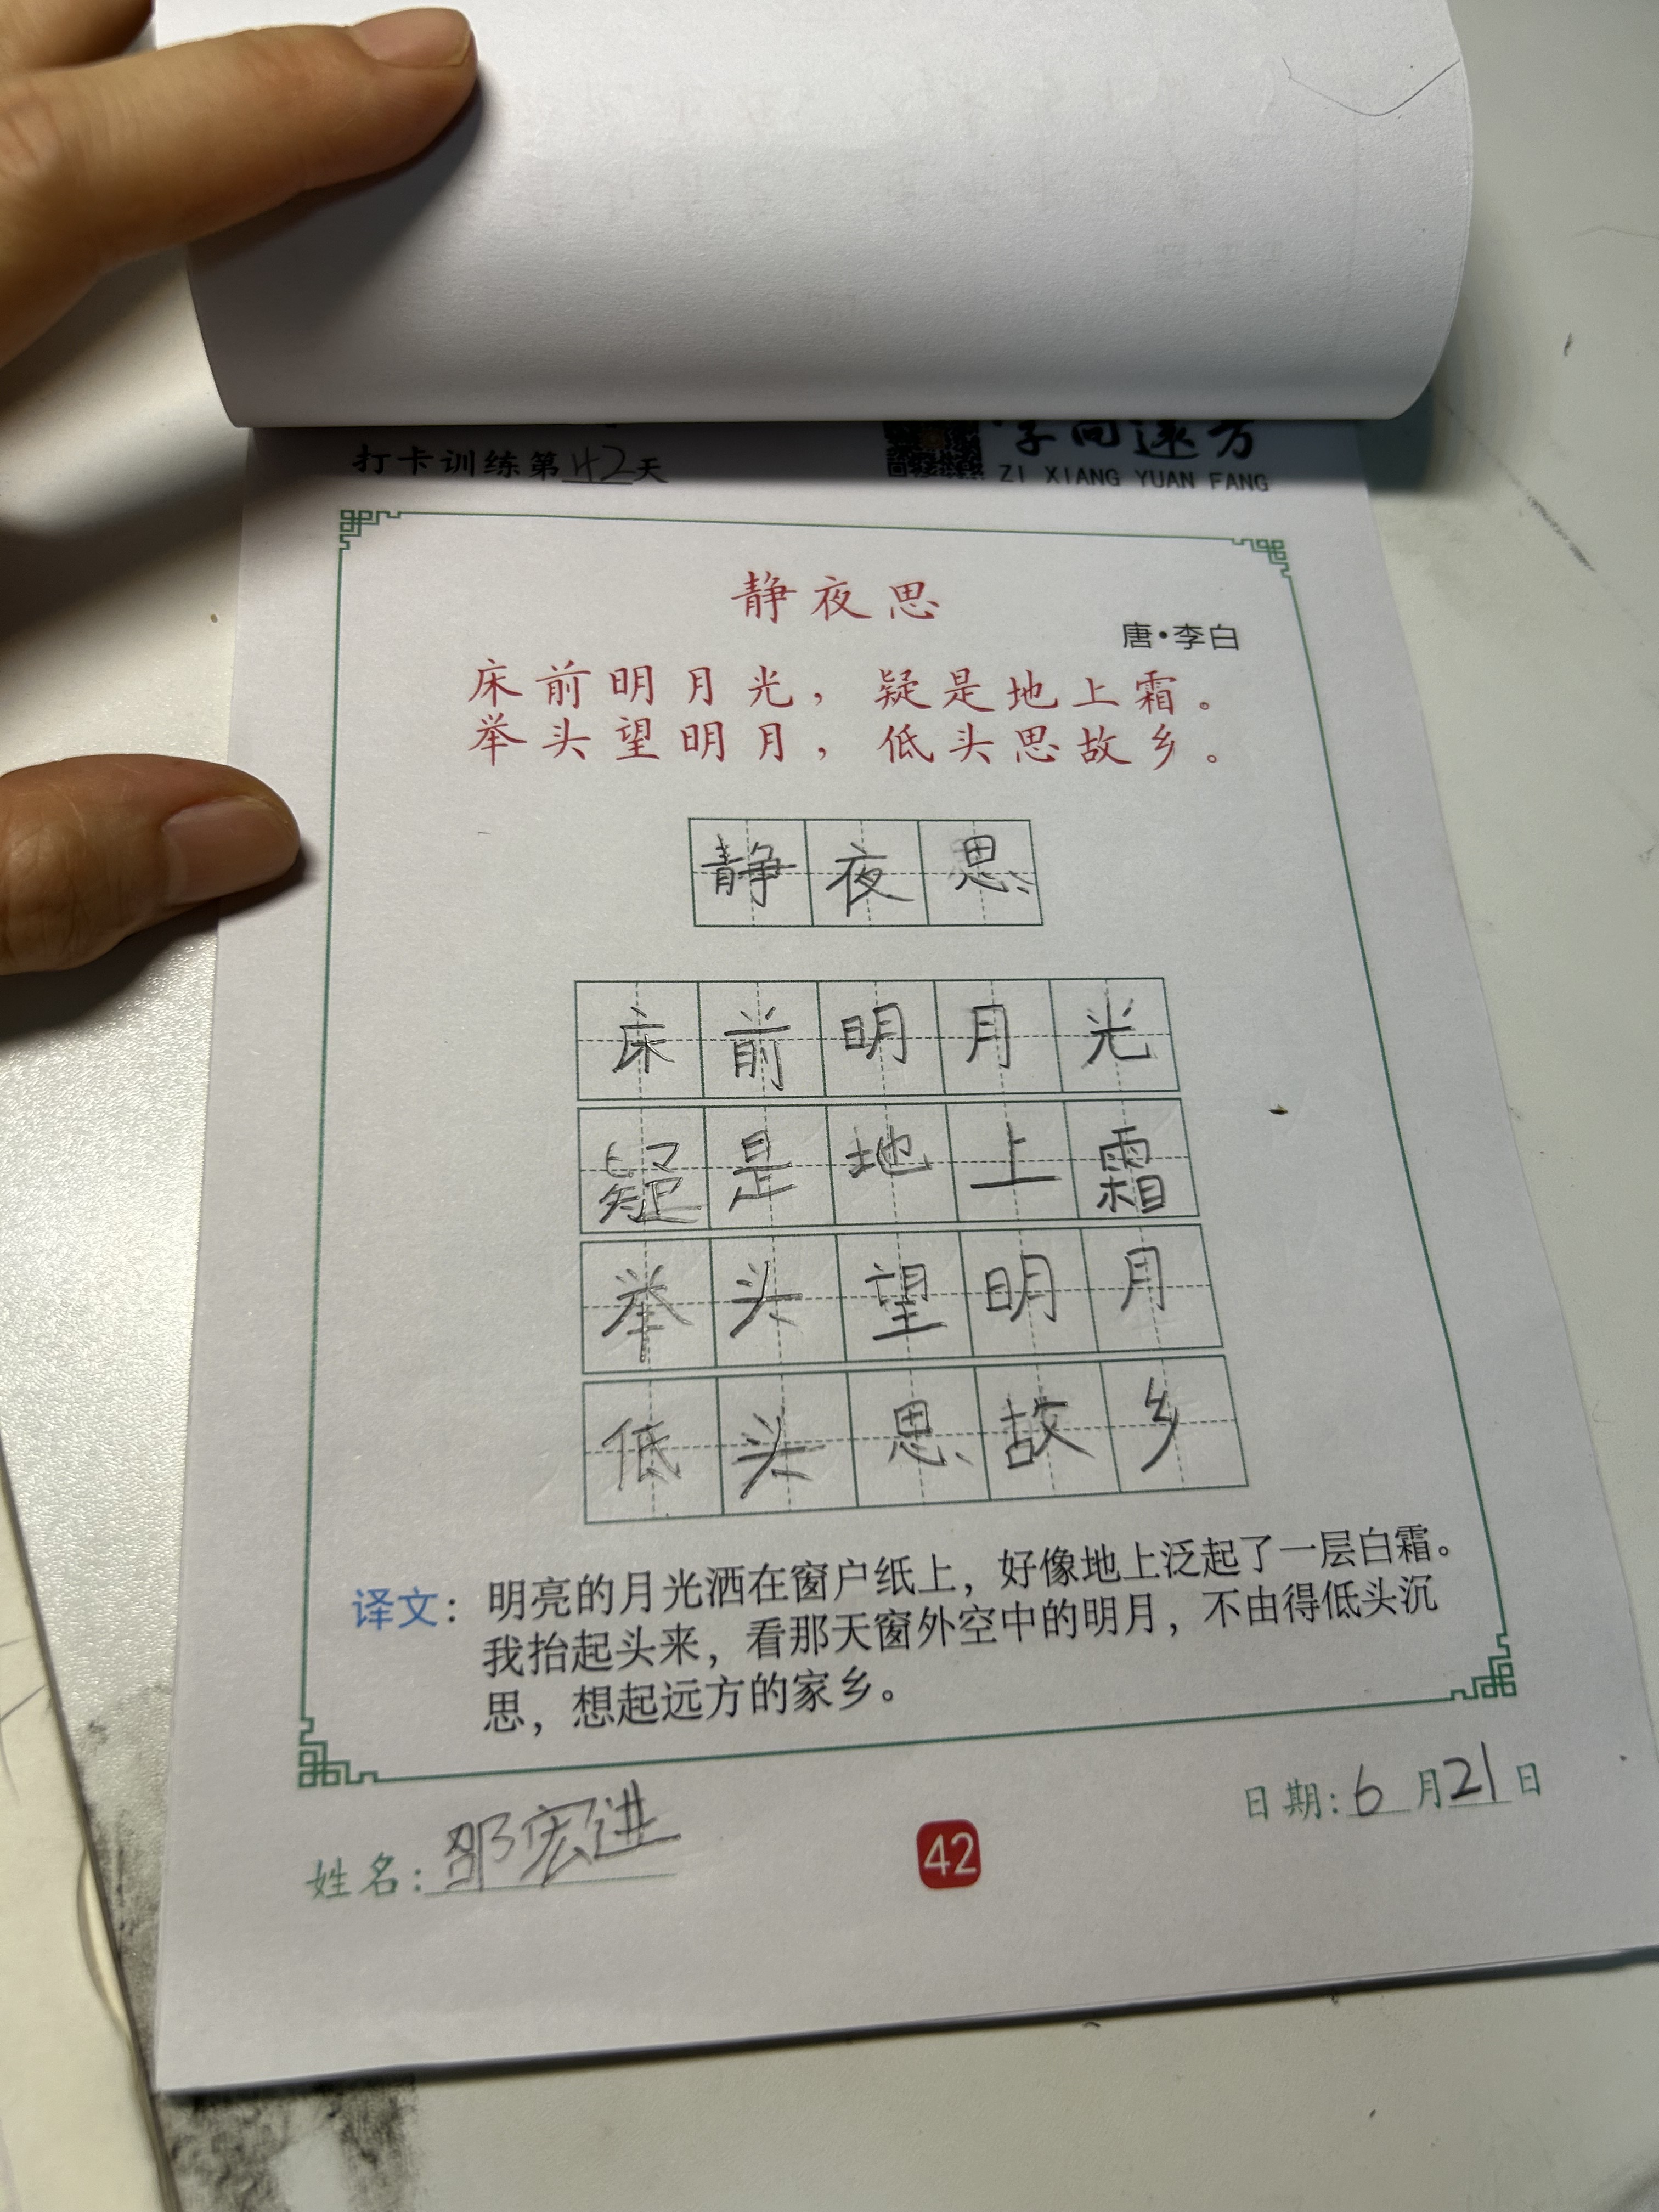 打卡训练第42天
字向远方
ZI XIANG YUAN FANG
静夜思
唐·李白
床前明月光，疑是地上霜。
举头望明月，低头思故乡。
静夜思
床前明月光
疑是地上霜
举头望明月
低头思故乡
译文：明亮的月光洒在窗户纸上，好像地上泛起了一层白霜。
我抬起头来，看那天窗外空中的明月，不由得低头沉
思，想起远方的家乡。
姓名：邵宏进
42
日期：6月21日